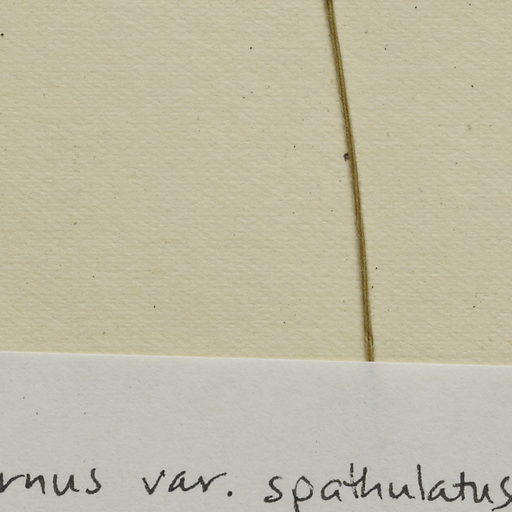 rnus var. spathulatus